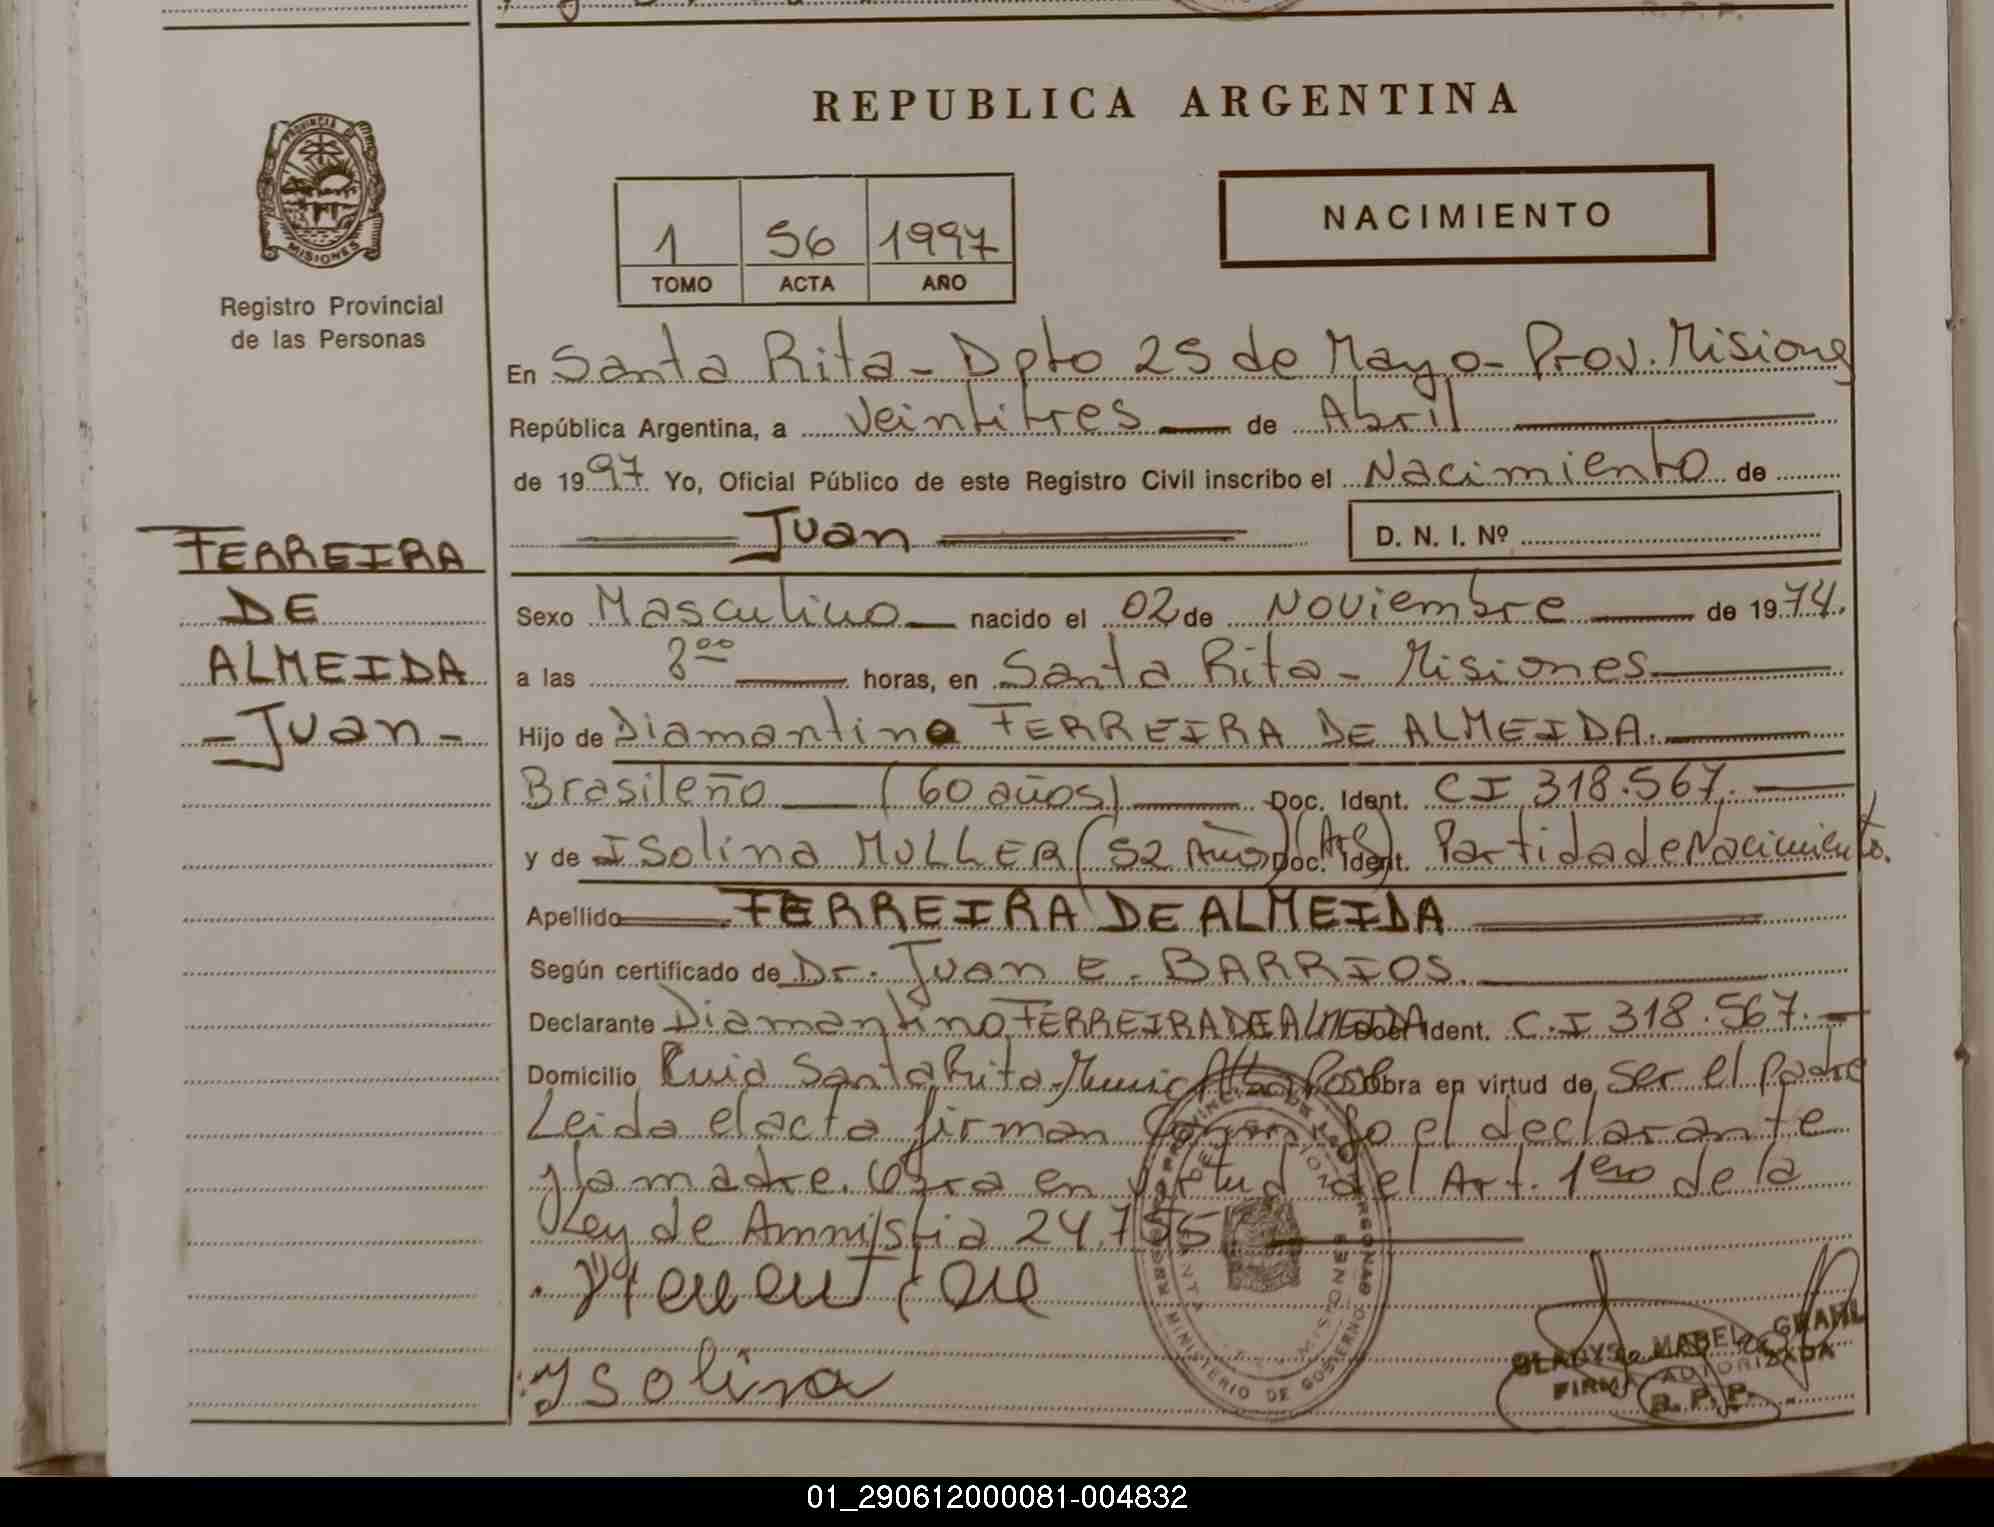 REPUBLICA ARGENTINA
PROVINCIA DE
MISIONES
Registro Provincial
de las Personas
1 56 1997
TOMO ACTA AÑO
NACIMIENTO
En Santa Rita - Dpto 25 de Mayo - Prov. Misiones
República Argentina, a Veintitres de Abril
de 1997 Yo, Oficial Público de este Registro Civil inscribo el Nacimiento de
Juan D. N. I. Nº
FERREIRA
DE
ALMEIDA
- Juan -
Sexo Masculino nacido el 02 de Noviembre de 1974.
a las 8 00 horas, en Santa Rita - Misiones
Hijo de Diamantino FERREIRA DE ALMEIDA.
Brasileño (60 años) Doc. Ident. CI 318.567.
y de Isolina MULLER (52 Años) (Arg) Doc. Ident. Partida de Nacimiento.
Apellido FERREIRA DE ALMEIDA
Según certificado de Dr. Juan E. BARRIOS.
Declarante Diamantino FERREIRA DE ALMEIDA Doc. Ident. C.I 318.567.
Domicilio Santa Rita - Munic Alba Posse Obra en virtud de ser el padre
Leida el acta firman conmigo el declarante
y la madre. Obra en virtud del Art. 1ero de la
Ley de Amnistia 24.755
Isolina
MINISTERIO DE GOBIERNO
GLADYS MABEL GRAHL
FIRMA AUTORIZADA
R. P. P.
01_290612000081-004832